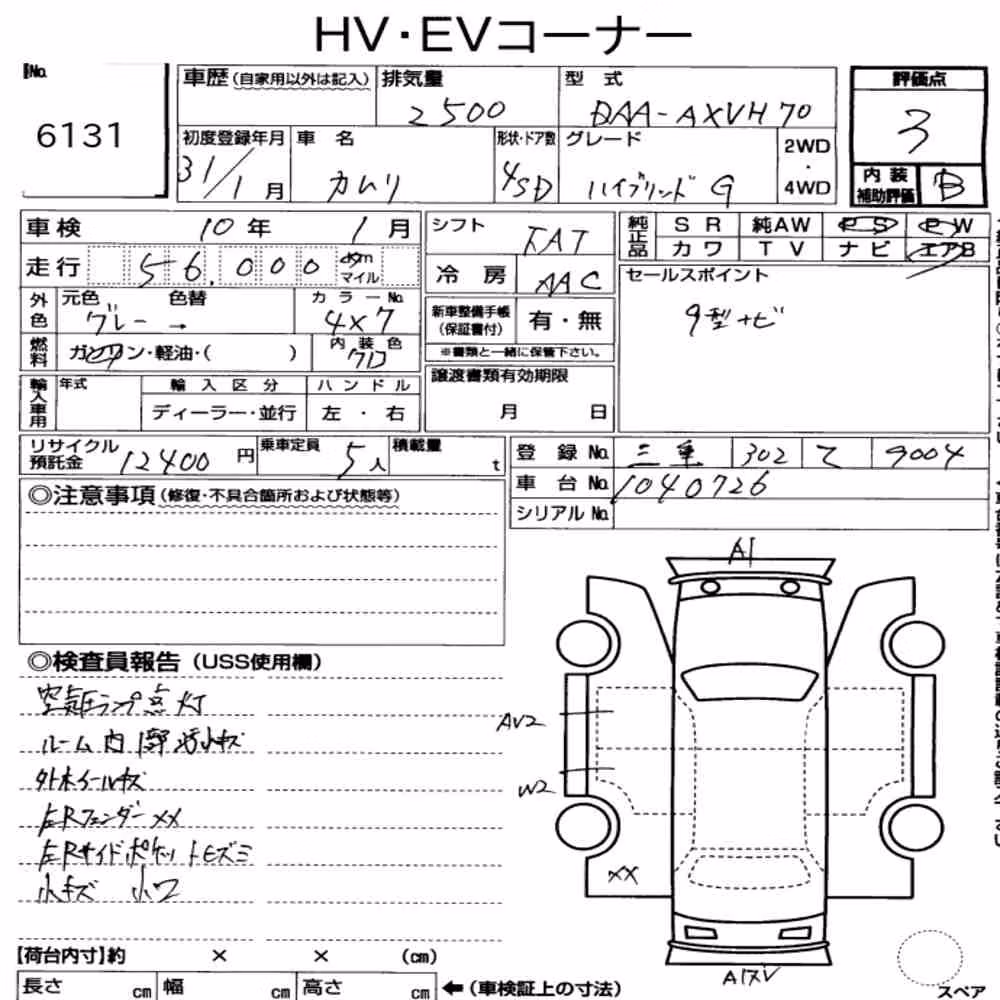 HV・EVコーナー
No.
6131
車歴(自家用以外は記入)
排気量
2500
型 式
DAA-AXVH70
評価点
3
初度登録年月
31/1月
車 名
カムリ
形状・ドア数
4SD
グレード
ハイブリッド G
2WD
・
4WD
内 装
補助評価
B
車検 10年 1月
走行 56,000 km マイル
外色
元色 グレー →
色替
カラーNo.
4X7
燃料
ガソリン・軽油・( )
内装色
クロ
輸入車用
年式
輸入区分
ディーラー・並行
ハンドル
左・右
シフト
FAT
冷房
AAC
新車整備手帳
(保証書付)
有・無
※書類と一緒に保管下さい。
譲渡書類有効期限
月 日
純正品
SR 純AW PS PW
カワ TV ナビ エアB
セールスポイント
9型ナビ
リサイクル
預託金
12400円
乗車定員
5人
積載量
t
登録No. 三重 302 て 9004
車台No. 1040726
シリアルNo.
◎注意事項(修復・不具合箇所および状態等)
◎検査員報告(USS使用欄)
空気圧ランプ点灯
ルーム内1部汚小キズ
外ホイールキズ
左Rフェンダーxx
左Rサイドポケットヒズミ
小キズ 小ワ
A1
AV2
W2
XX
【荷台内寸】約 × × (cm)
長さ cm 幅 cm 高さ cm ←(車検証上の寸法)
スペア